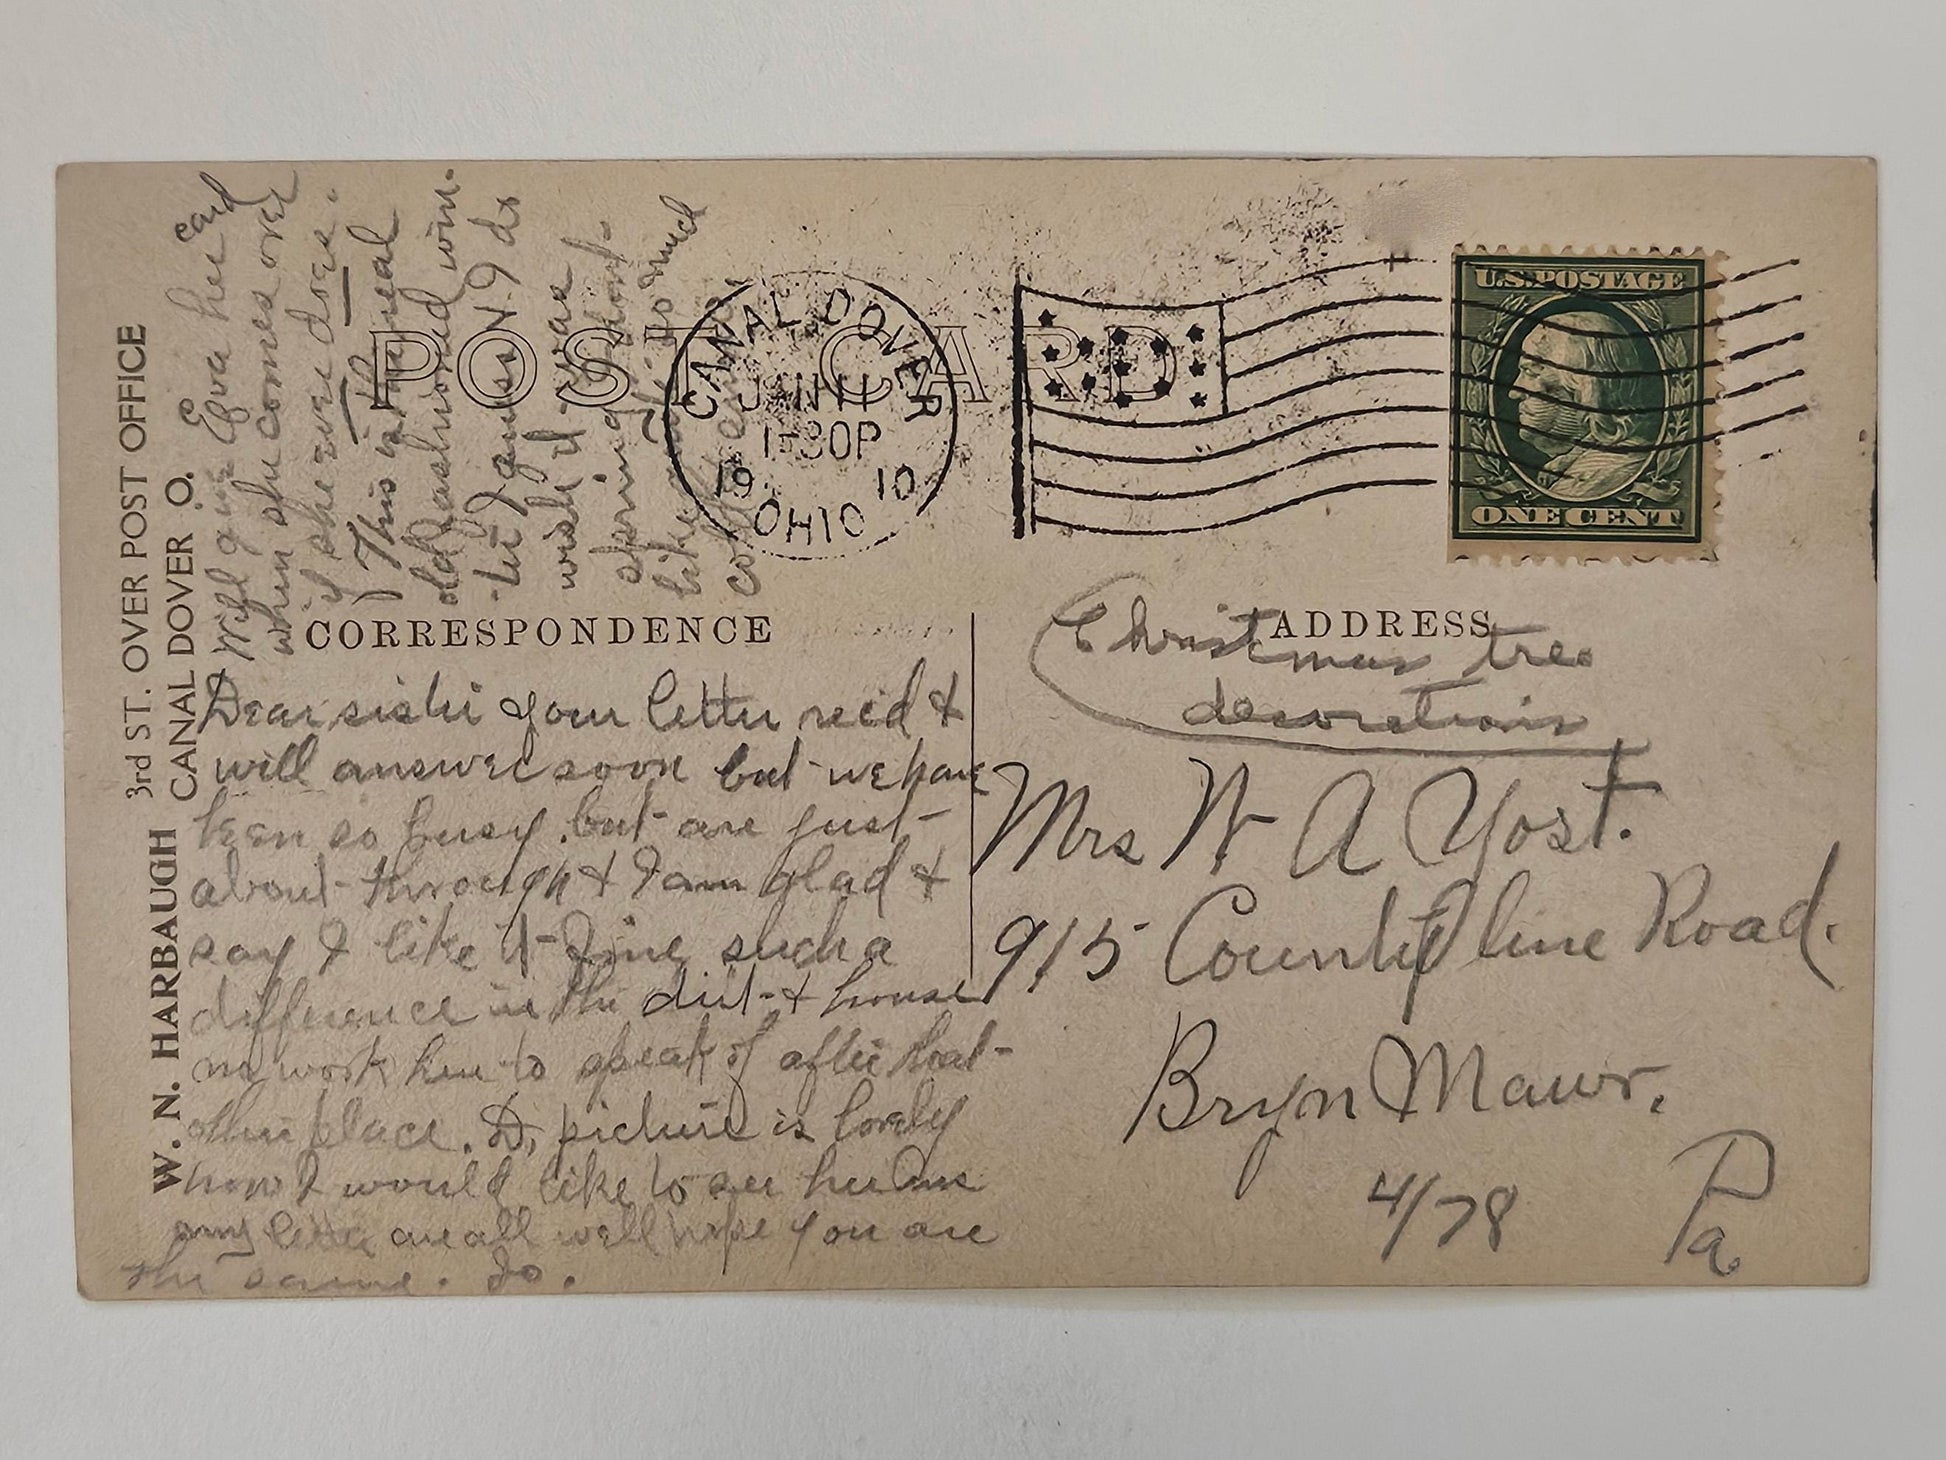 W. N. HARBAUGH
3rd ST. OVER POST OFFICE
CANAL DOVER O.
POST CARD
CANAL DOVER
JAN 11
1-30P
19 10
OHIO
U.S. POSTAGE
ONE CENT
CORRESPONDENCE
ADDRESS
Dear sister your letter rec'd &
will answer soon but we have
been so busy. but are just
about through & I am glad &
say I like it fine such a
difference in the dirt & house
no work here to speak of after that
other place. D, picture is lovely
how I would like to see her
my letter are all well hope you are
the same. Jo.
Will give Eva her card
when she comes over
if she ever does.
This is the real
old fashioned win-
ter I guess N-9 do
wish it was
spring
like so much
cold
Christmas tree
decorations
Mrs W A Yost.
915 County line Road.
Bryn Mawr.
Pa
4/78